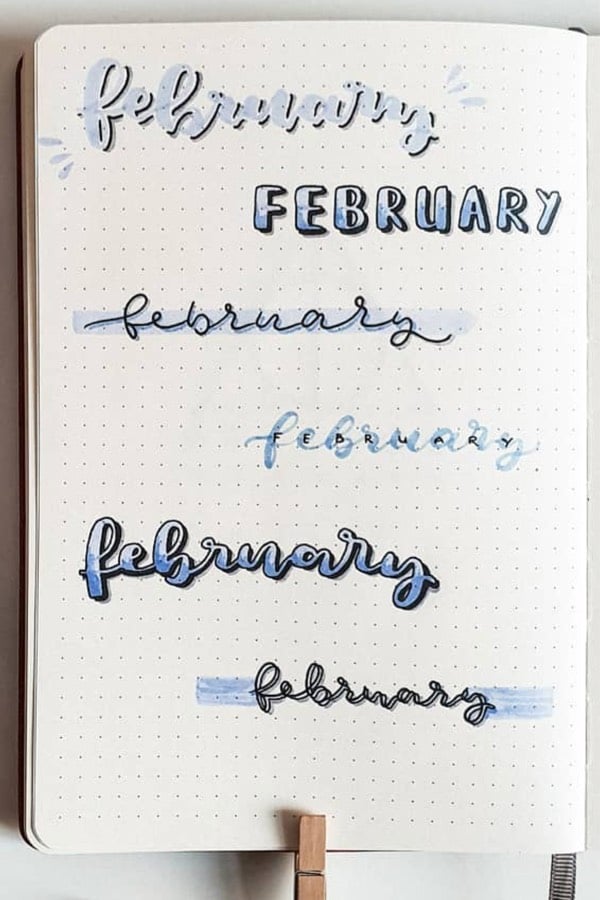 february
FEBRUARY
february
february
FEBRUARY
february
february